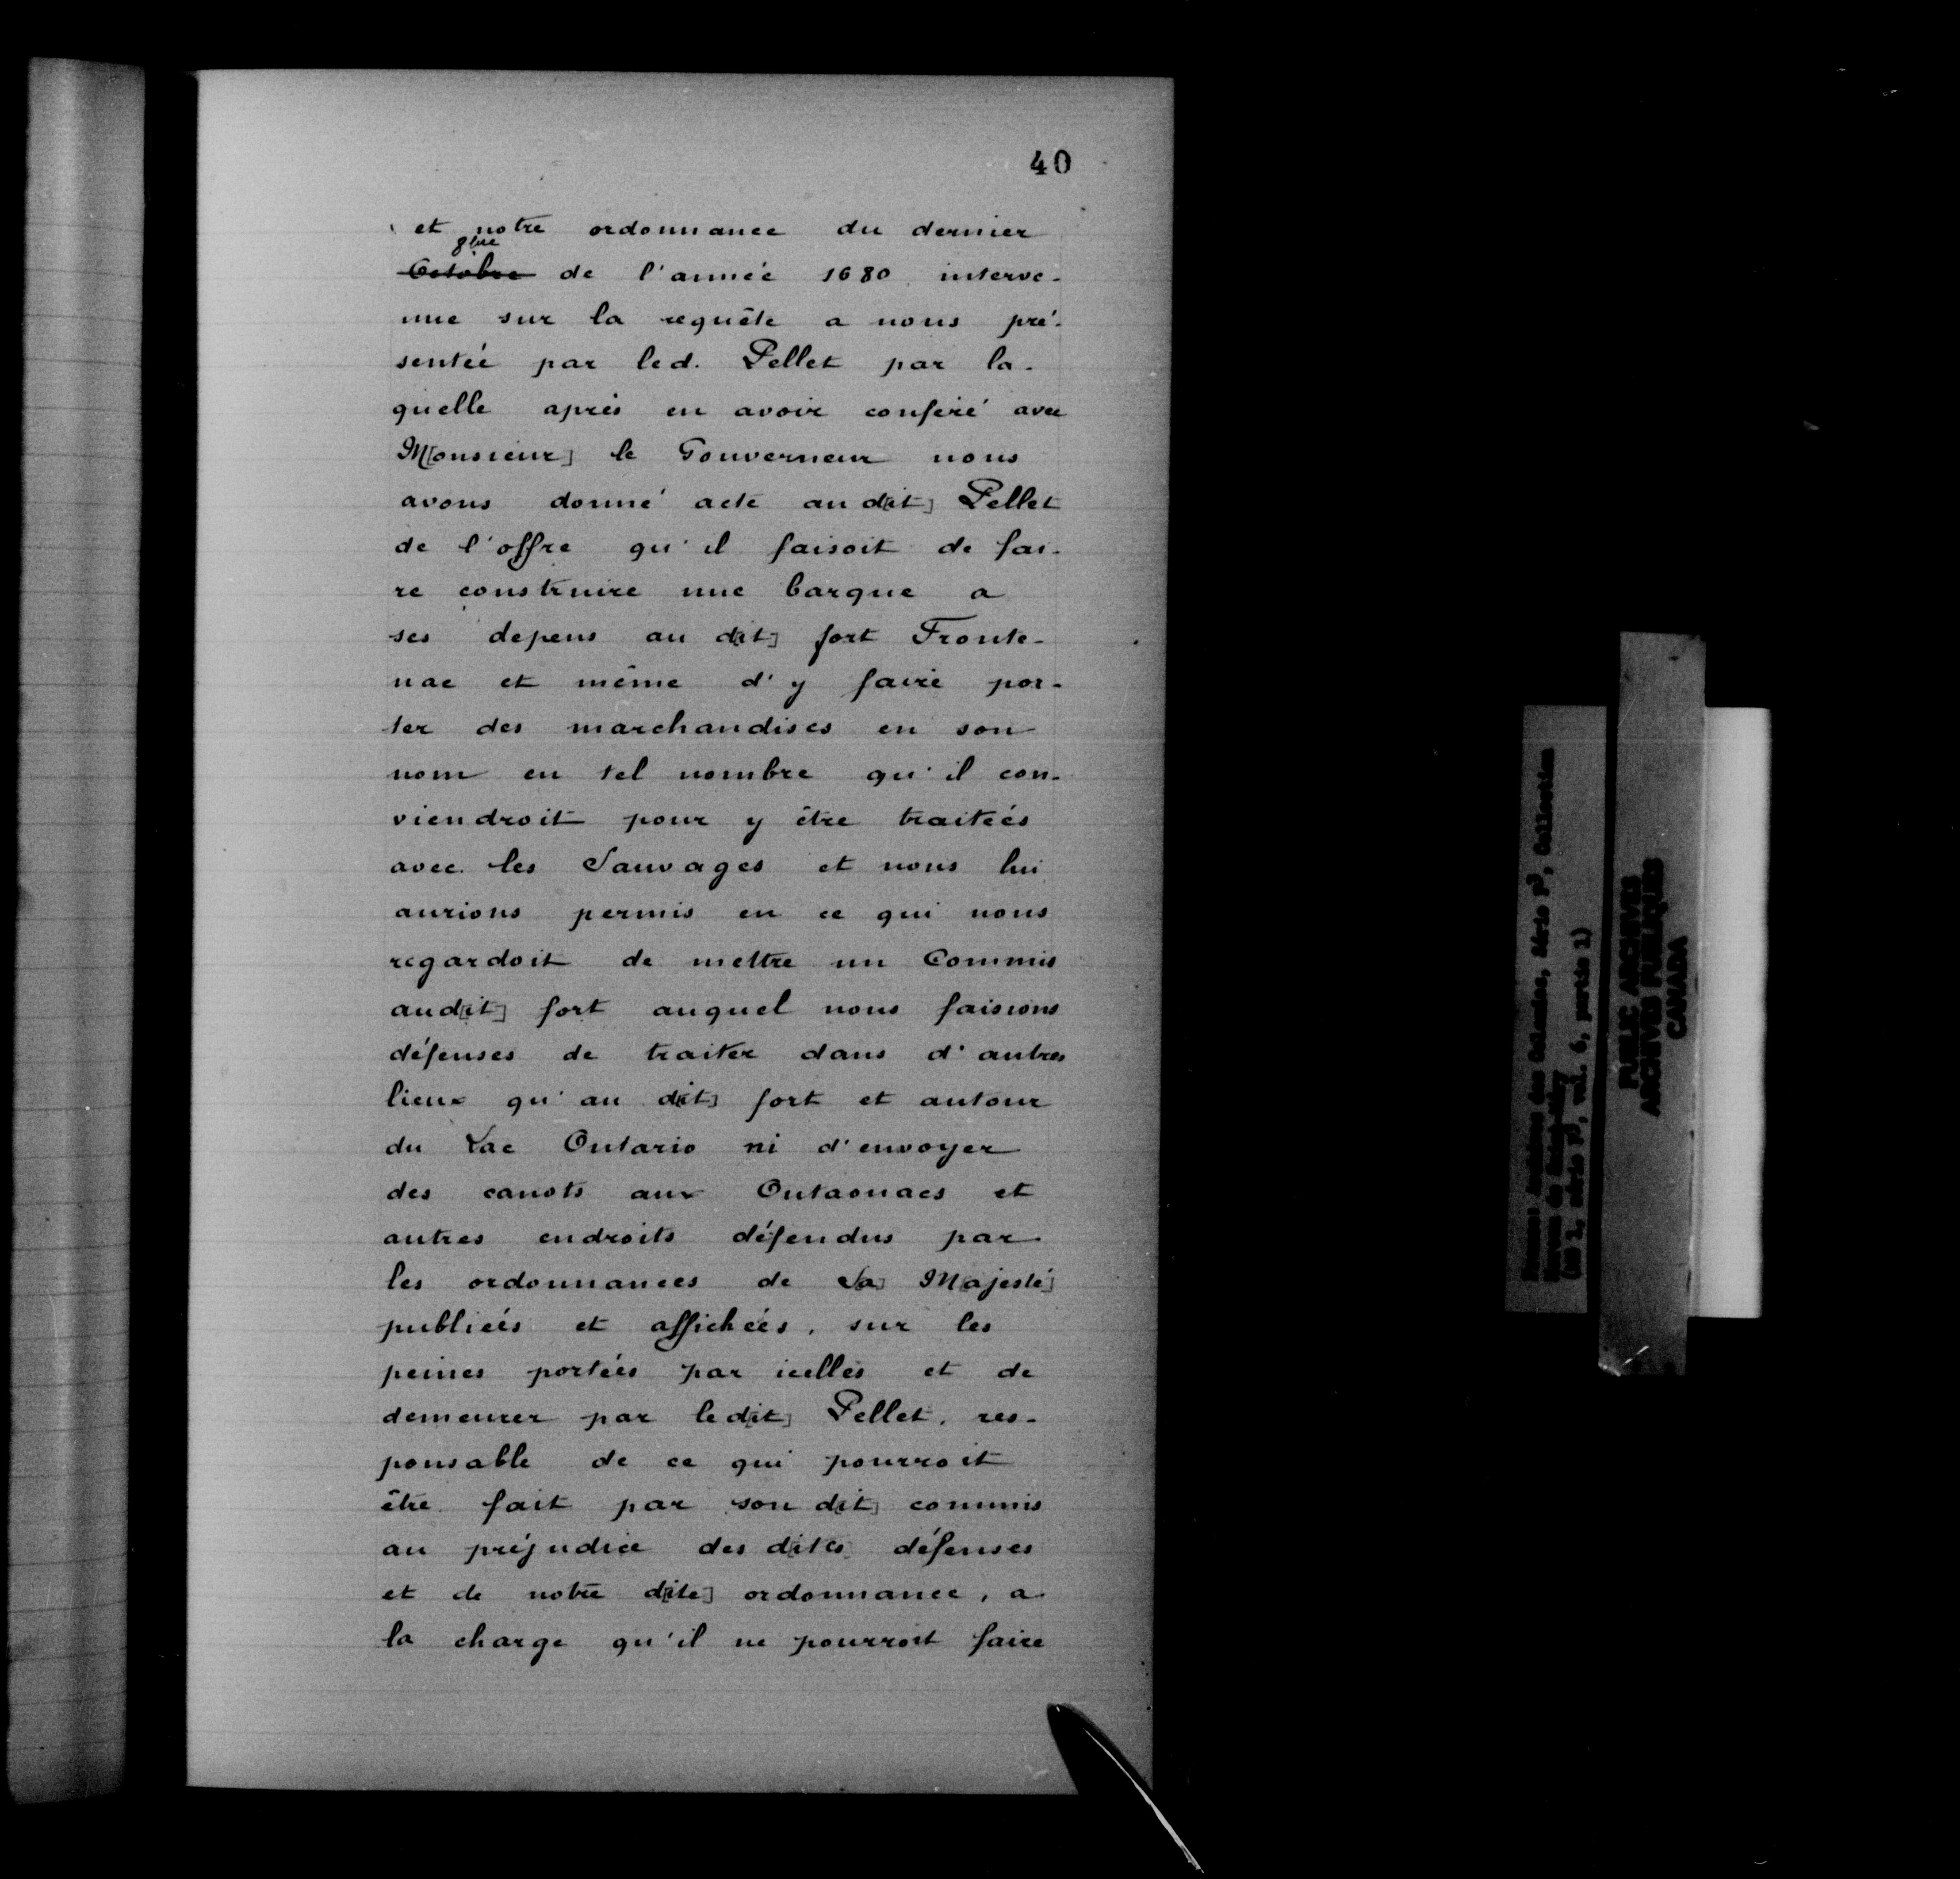 40
et notre ordonnance du dernier
8bre
Octobre de l'année 1680 interve-
nue sur la requête a nous pré-
sentée par led. Pellet par la-
quelle après en avoir conferé avec
M[onsieur] le Gouverneur nous
avons donné acte au d[it] Pellet
de l'offre qu'il faisoit de fai-
re construire une barque a
ses depens au d[it] fort Fronte-
nac et même d'y faire por-
ter des marchandises en son
nom en tel nombre qu'il con-
viendroit pour y être traitées
avec les Sauvages et nous lui
aurions permis en ce qui nous
regardoit de mettre un Commis
aud[it] fort auquel nous faisions
défenses de traiter dans d'autres
lieux qu'au d[it] fort et autour
du Lac Ontario ni d'envoyer
des canots aux Outaouacs et
autres endroits défendus par
les ordonnances de Sa] M[ajesté]
publiées et affichées, sur les
peines portées par icelles et de
demeurer par led[it] Pellet, res-
ponsable de ce qui pourroit
être fait par son d[it] commis
au préjudice des d[ites] défenses
et de notre d[ite] ordonnance, a
la charge qu'il ne pourroit faire
PUBLIC ARCHIVES
ARCHIVES PUBLIQUES
CANADA
Archives des Colonies, Série F3, Collection
Moreau de
2, série F3, vol. 6, partie 1)